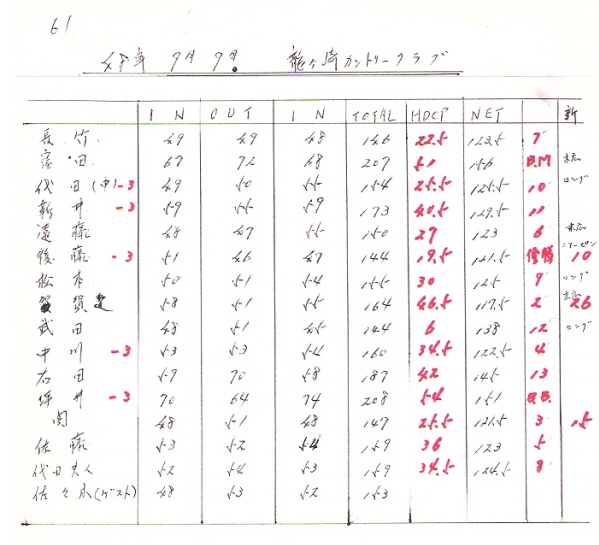 61
48年 9月 9日 龍ヶ崎カントリークラブ
IN OUT IN TOTAL HDCP NET 新
長竹 49 49 48 146 22.5 123.5 7
富田 67 72 68 207 51 156 B.M
代田(中) -3 49 50 55 154 25.5 125.5 10 ロング
新井 -3 59 55 59 173 40.5 129.5 11
遠藤 48 47 55 150 27 123 6
後藤 -3 51 46 47 144 19.5 121.5 優勝 10
松本 50 51 54 155 30 125 9 ロング
賀 58 51 55 164 46.5 117.5 2 26
武田 48 51 45 144 6 138 12 ロング
中川 -3 53 53 54 160 34.5 122.5 4
右田 59 70 58 187 42 145 13
坪井 -3 70 64 74 208 54 151 B.B.
関 48 51 48 147 25.5 121.5 3 15
佐藤 53 52 54 159 36 123 5
代田夫人 52 54 53 159 34.5 124.5 8
佐々木(ゲスト) 48 53 52 153